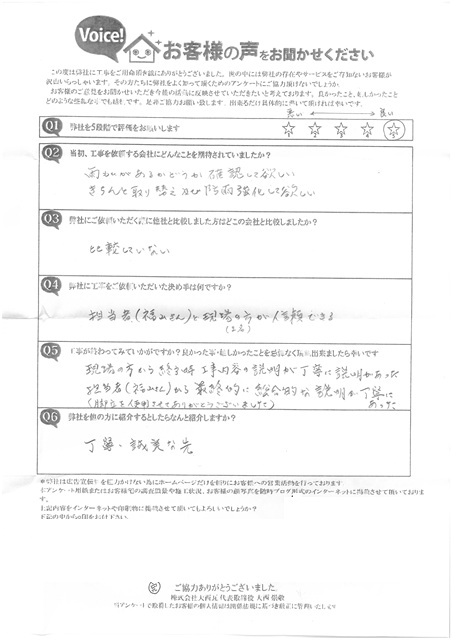 Voice!
お客様の声をお聞かせください
この度は弊社に工事をご用命頂き誠にありがとうございました。世の中には弊社の存在やサービスをご存知ないお客様が
沢山いらっしゃいます。その方たちに弊社をよく知って頂くためのアンケートにご協力頂けないでしょうか
お客様のご意見をお聞かせいただき今後の活動に反映させていただきたいと考えております。良かったこと、悪しかったこと
悪い 良い
Q1 弊社を5段階で評価をお願いします
Q2 当初、工事を依頼する会社にどんなことを期待されていましたか?
雨もれがあるかどうか確認して欲しい
きちんと取り替え及び防雨強化して欲しい
Q3 弊社にご依頼いただく際に他社と比較しました方はどこの会社と比較しましたか?
比較していない
Q4 弊社に工事をご依頼いただいた決め事は何ですか?
担当者(福山さん)と現場の方が信頼できる
(2名)
Q5 工事が終わってみていかがですか?良かった事・悔しかったことを
現場の方から終了時 工事内容の説明が丁寧に説明があった
担当者(福山さん)から最終的に総合的な説明が丁寧に
あった
Q6 弊社を他の方に紹介するとしたらなんと紹介しますか?
丁寧・誠実な先
上記内容をインターネットや印刷物に掲載させて頂いてもよろしいでしょうか?
ご協力ありがとうございました
株式会社大西瓦 代表取締役 大西